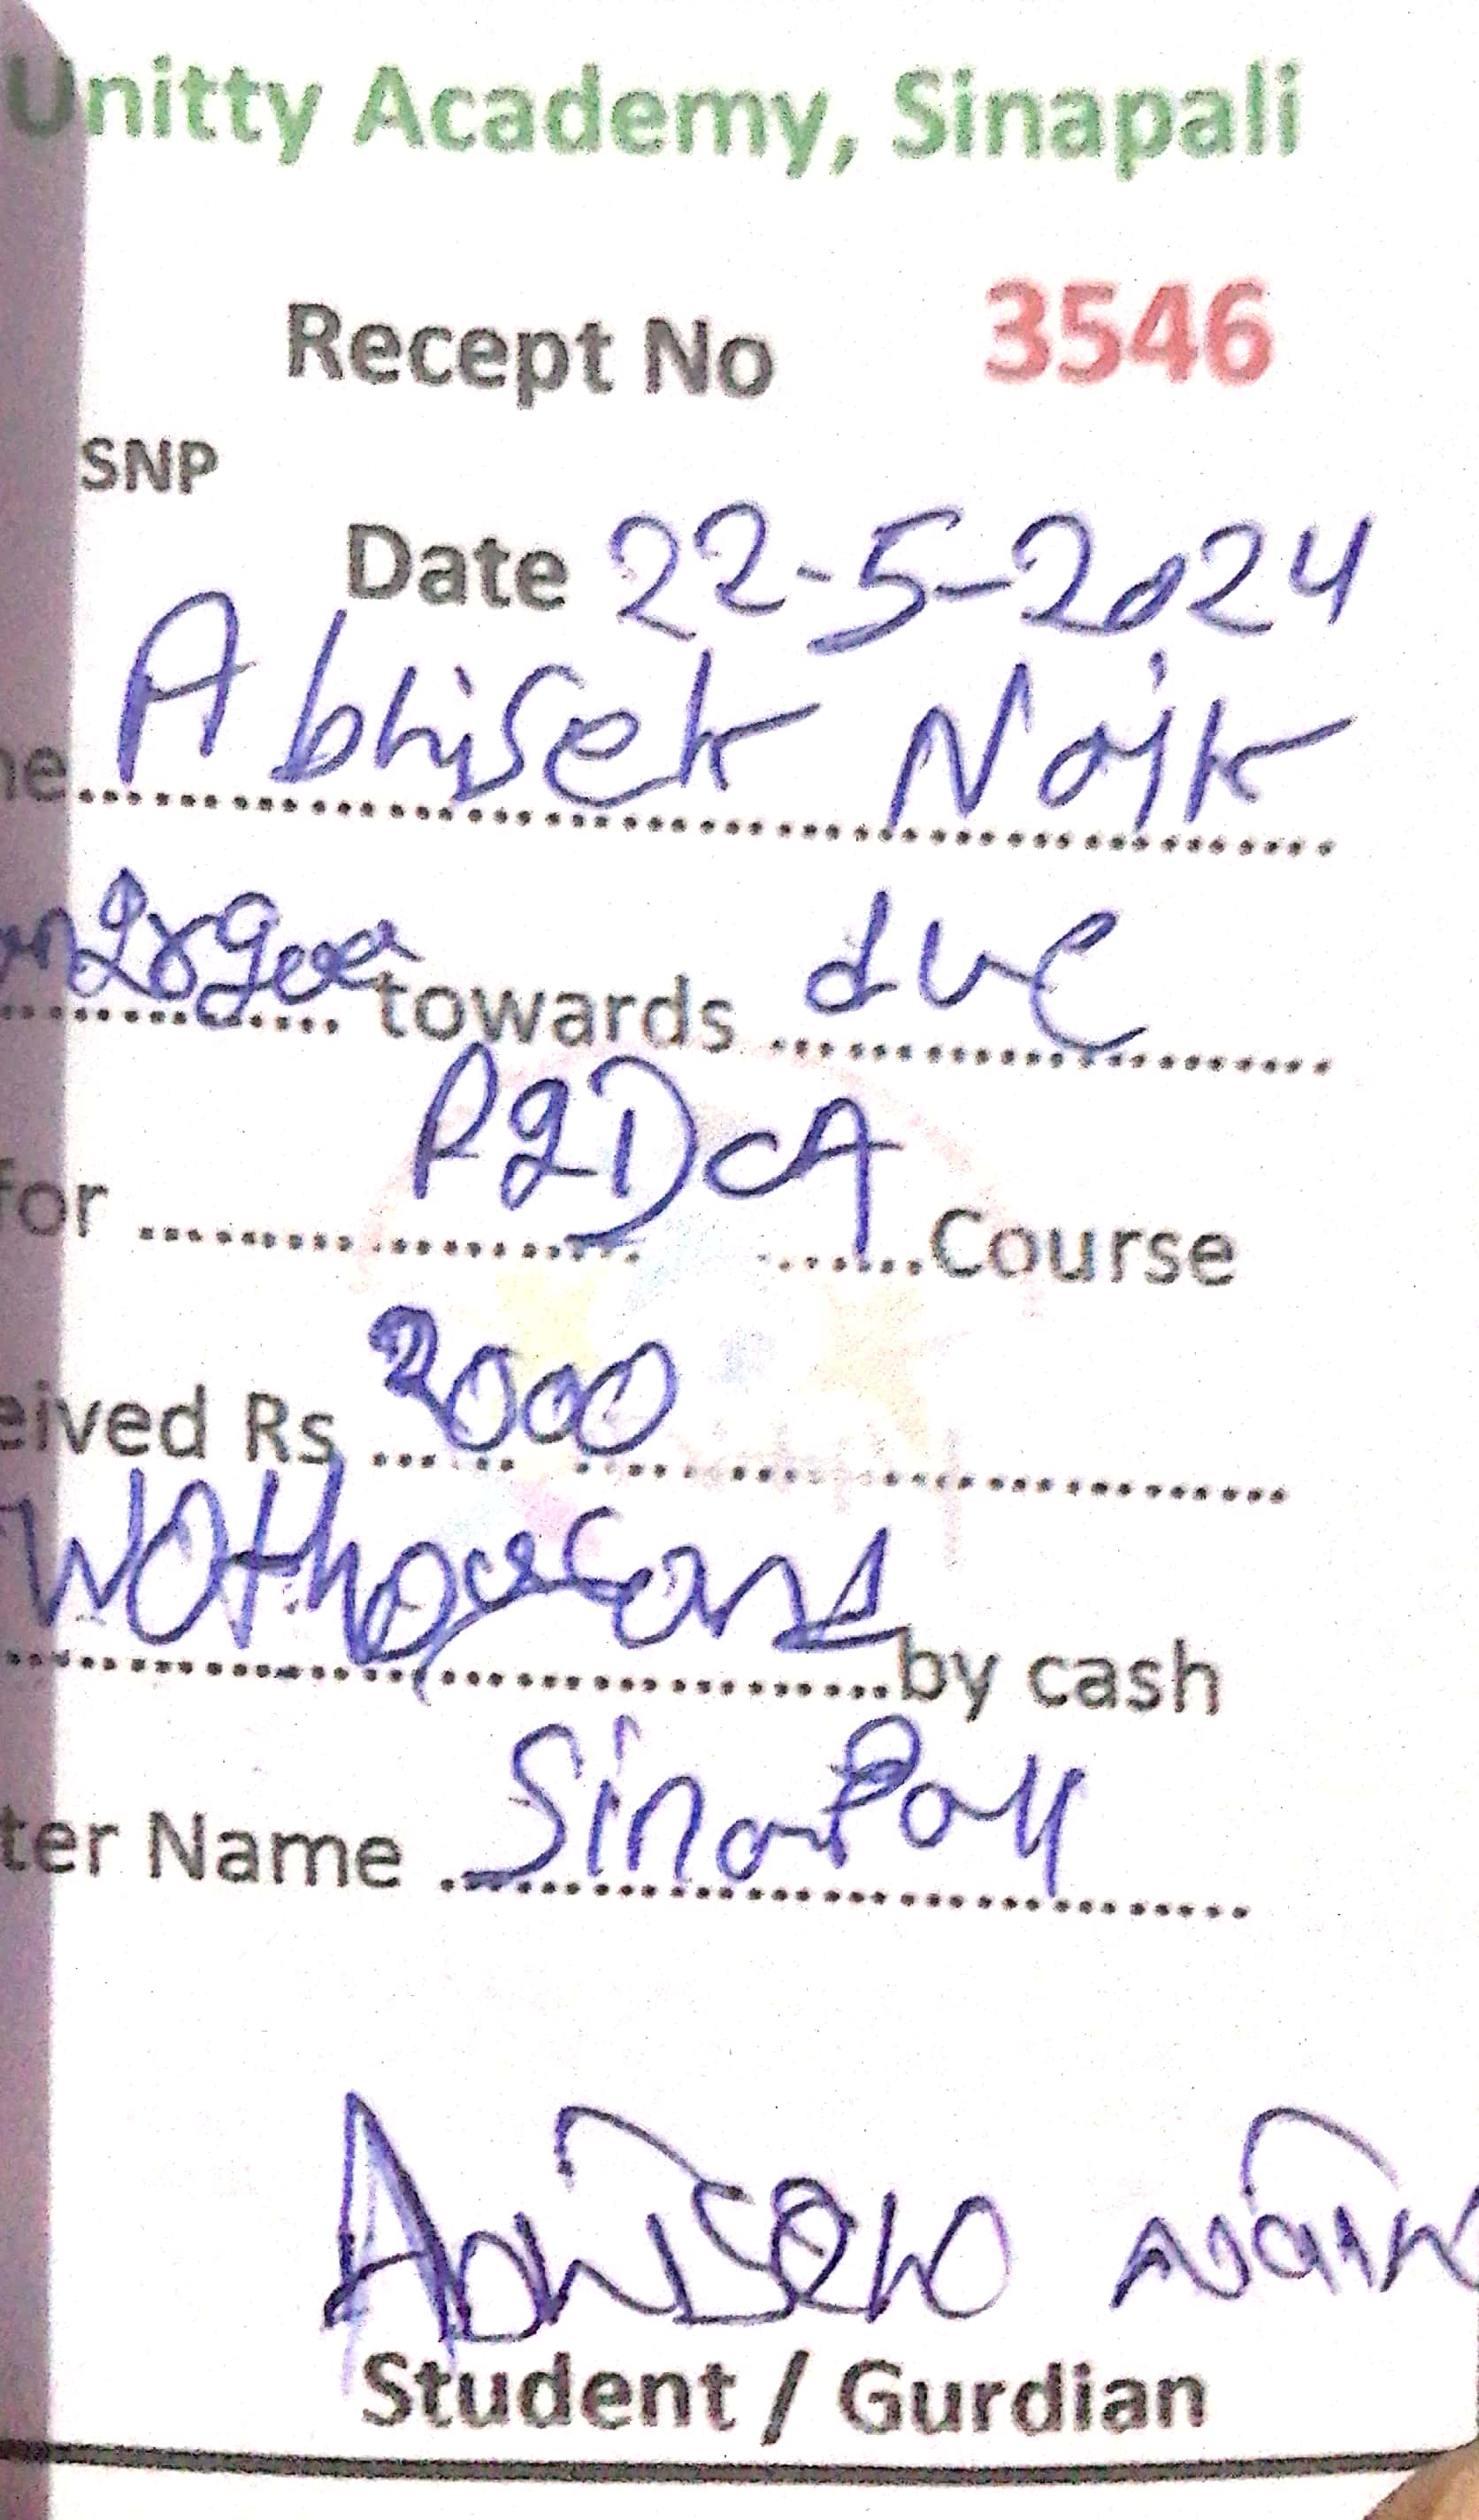 Unitty Academy, Sinapali
Recept No 3546
SNP
Date 22-5-2024
me Abhisek Naik
towards due
for PGDCA Course
eived Rs 2000
Twothousand by cash
ter Name Sinapali
Abhisek Naik
Student / Gurdian